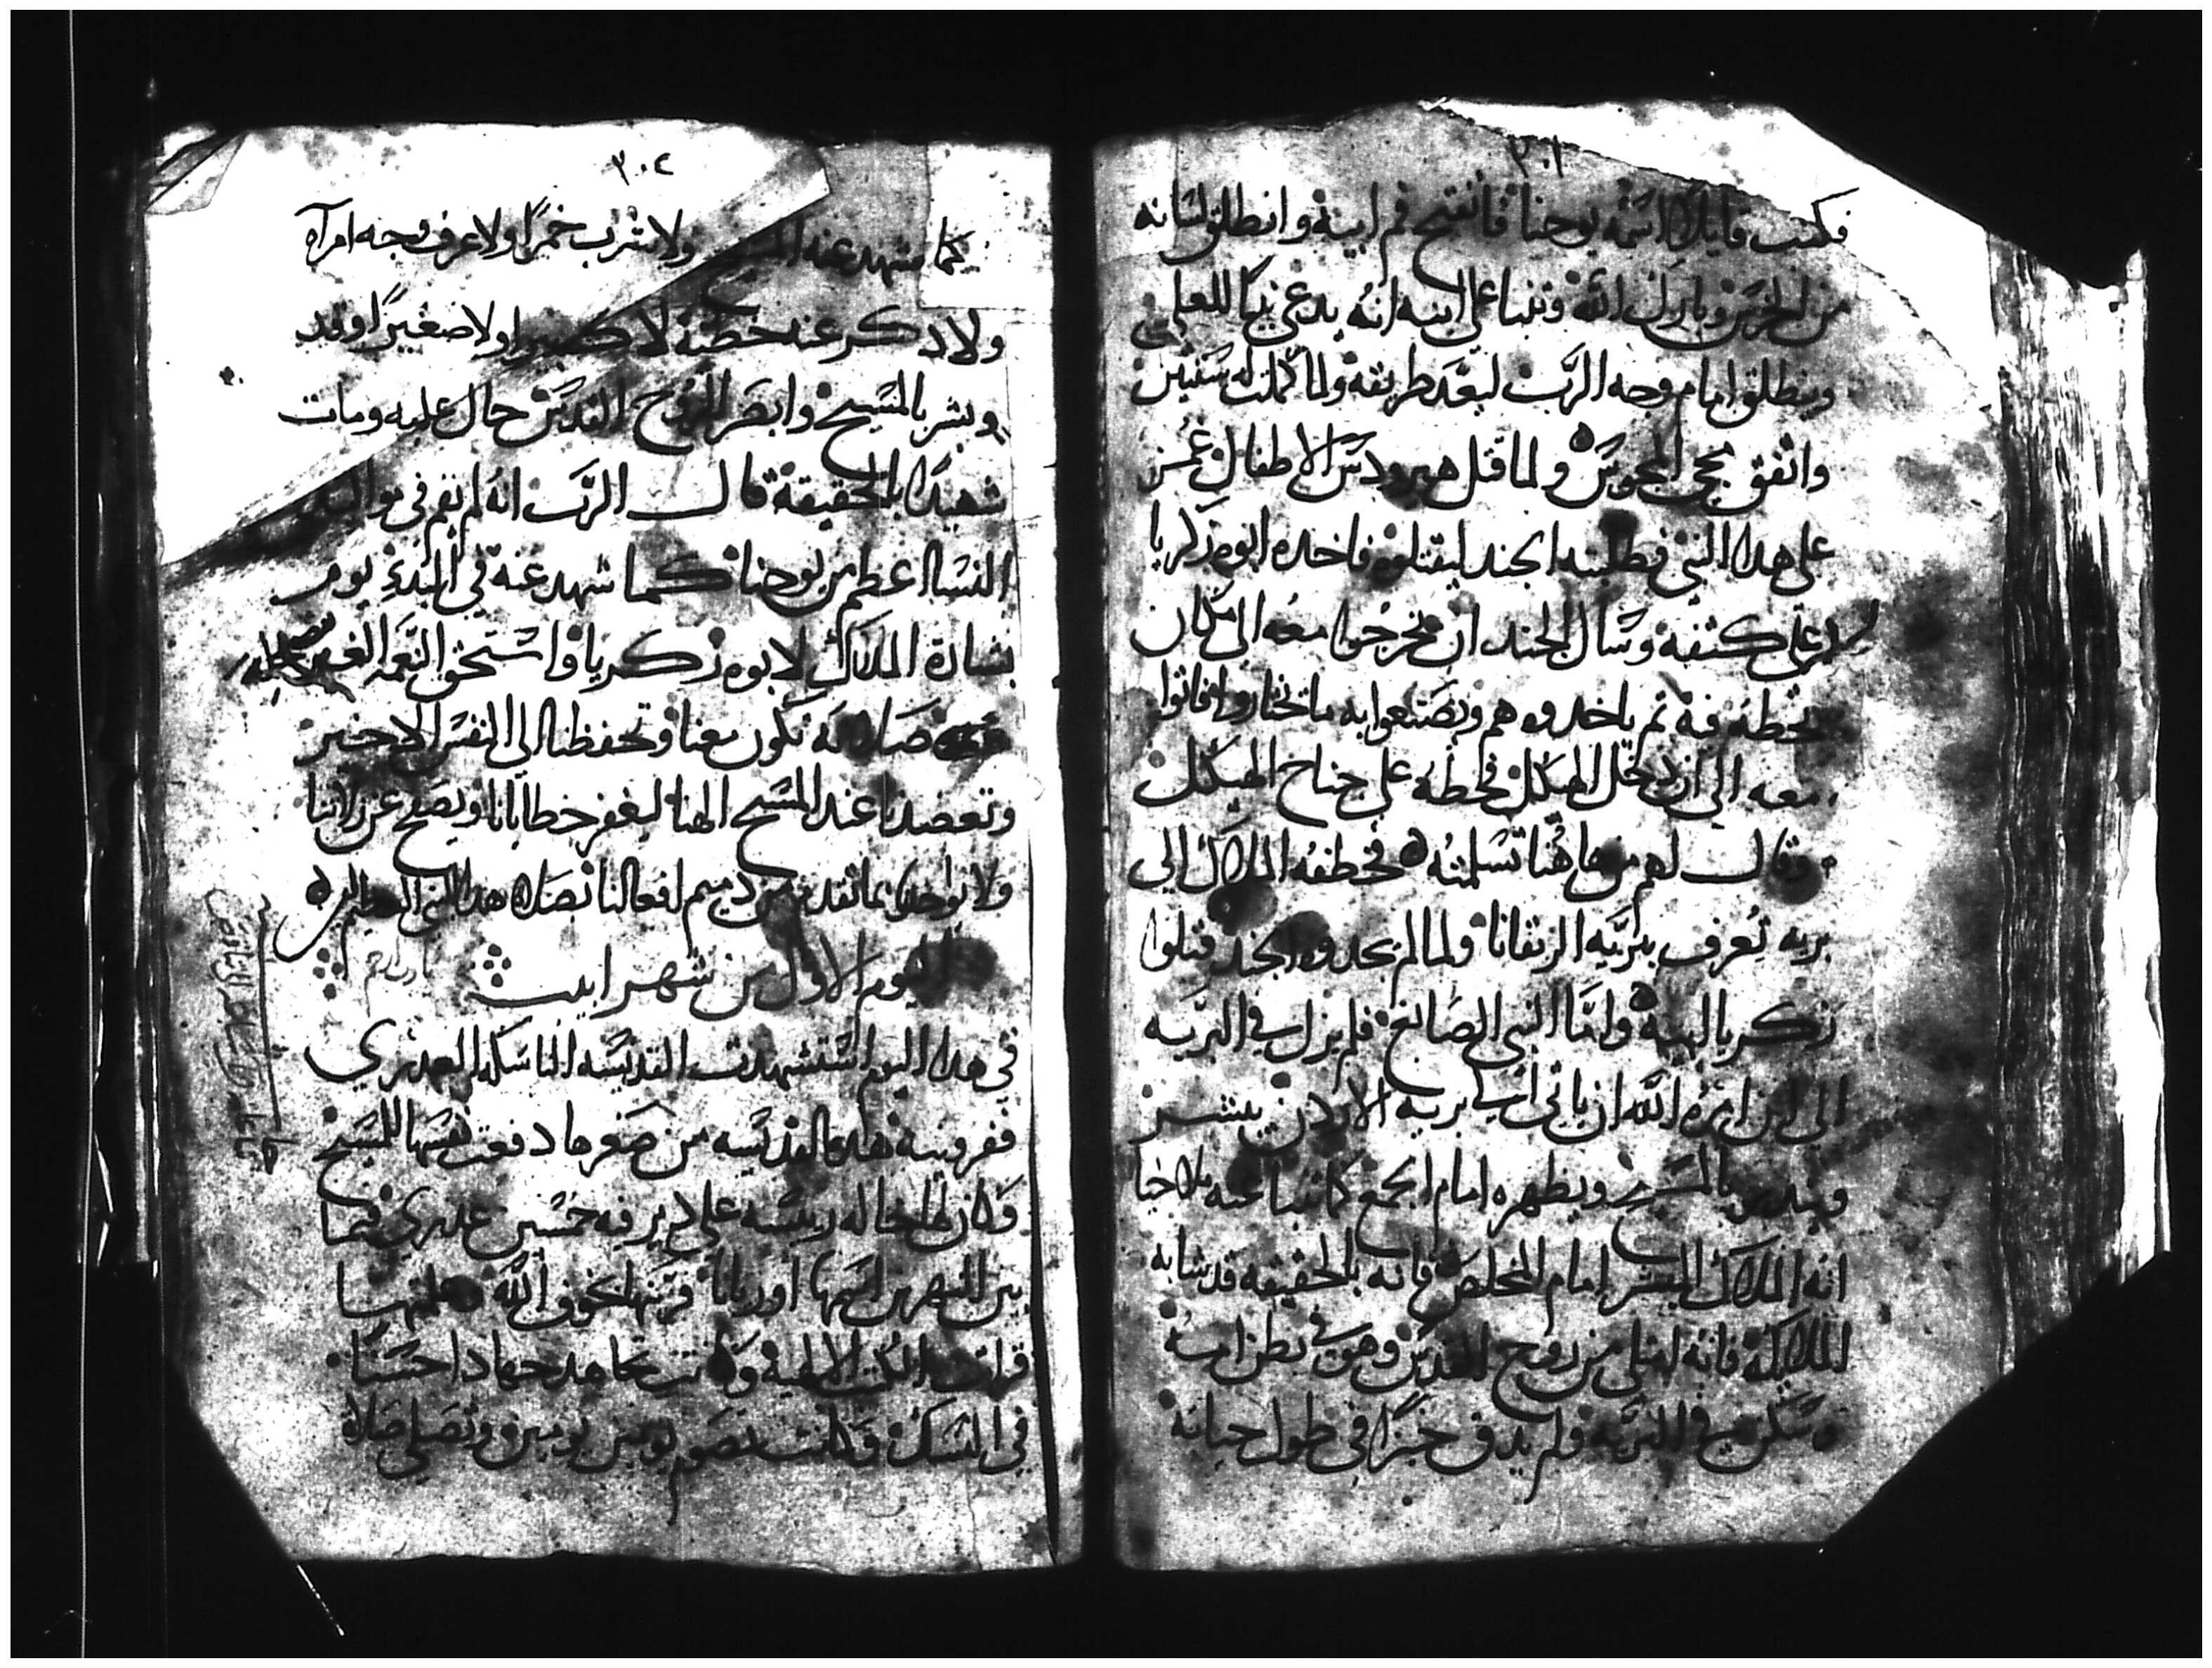 ٣٠١
فكتب قايلا اسمه يوحنا فانفتح فم ابيه وانطلق لسانه
من الخرس وبارك الله وتنبا على ابنه انه يدعى نبيا للعلي
وينطلق امام وجه الرب ليعد طريقه ولما كملت له سنتين
واتفق مجي المجوس ولما قتل هيرودس الاطفال غمز
على هدا النبي فطلبته الجند ليقتلوه فاخده ابوه زكريا
على كتفه وسال الجند ان يخرجوا معه الى مكان
يحطه فيه ثم ياخدوه هم ويصنعوا به ما تختاروا فاتوا
معه الى ان دخل الهيكل فحطه على جناح الهيكل
وقال لهم من هاهنا تسلمته فخطفه الملاك الى
بريه تعرف ببريه الزيفانا ولما لم يجدوه الجند قتلوا
زكريا ابيه واما النبي الصابغ فلم يزل في البريه
الى ان امره الله ان ياتي الى بريه الاردن يبشر
وينذر بالمسيح ويظهره امام الجمع كما تنبا عنه ملاخيا
انه الملاك المبشر امام المخلص فانه بالحقيقه قد شابه
الملايكة فانه امتلى من روح القدس وهو في بطن امه
وسكن في البريه ولم يدق خبزا في طول حياته
٣٠٤
كما شهد عنه المسيح ولا يشرب خمرا ولا عرف وجه امرآه
ولا دكر عنه خطية لا كبيرا ولا صغيرا وقد
وبشر بالمسيح وابصر الروح القدس حال عليه ومات
شهيدا بالحقيقة قال الرب انه لم يقم في مواليد
النسا اعظم من يوحنا كما شهد عنه في البدء يوم
بشارة الملاك لابوه زكريا واستحق النعمه الغير
صلاته تكون معنا وتحفظنا الى النفس الاخير
وتعضدنا عند المسيح الهنا ليغفر خطايانا ويصفح عن زلاتنا
ولا يواخدنا بما تقدم من دميم افعالنا بصلاة هدا النبي العظيم
اليوم الاول من شهر ابيب
في هدا اليوم استشهدت القديسه الناسكه العدري
فبرونيه هده القديسه من صغرها دفعت نفسها للمسيح
وكان لها خاله ريسه على دير فيه خمسين عدري فيما
بين النهرين اسمها اوريانا فربتها بخوف الله وعلمتها
قراة الكتب الالهية وكانت تجاهد جهادا حسنا
في النسك وكانت تصوم يومين يومين وتصلي صلاة